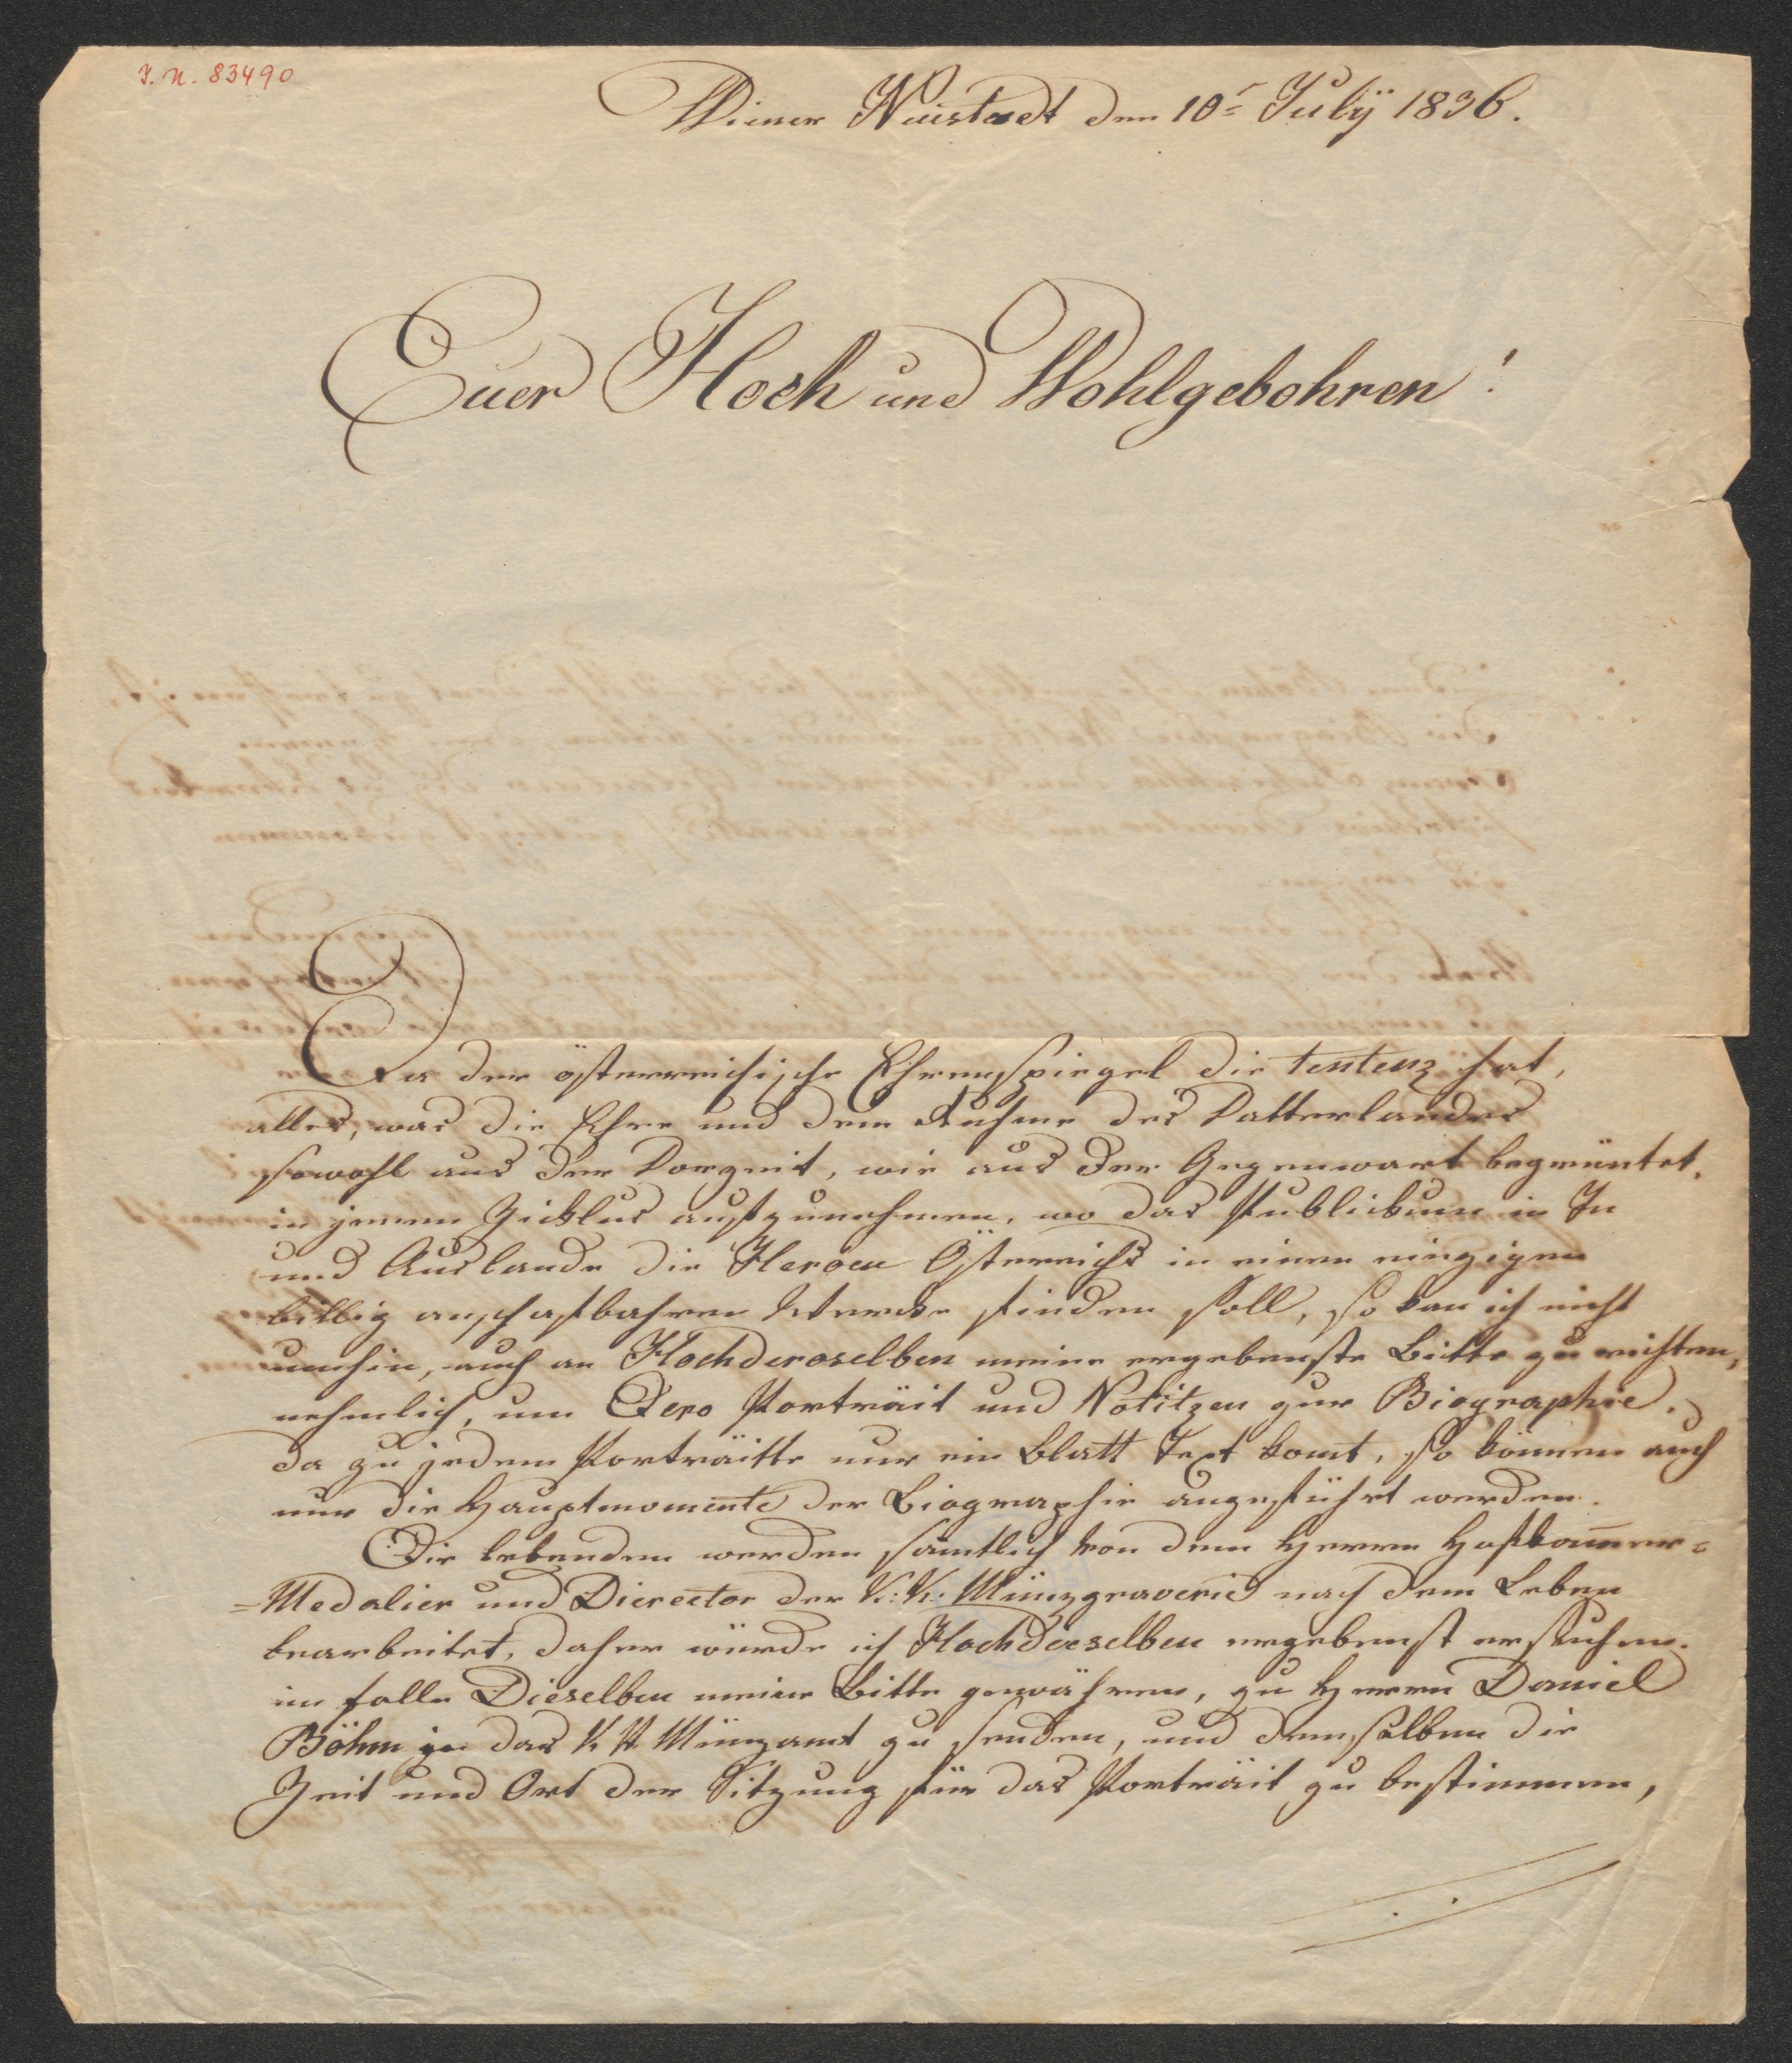 I. N. 83490
Wiener Neustadt den 10t July 1836.
Euer Hoch und Wohlgebohren!
Da der österreichische Ehrenspiegel die tentenz hat,
alles, was die Ehre und dem Ruhme des Vatterlandes
sowohl aus der Vorzeit, wie aus der Gegenwart begrüntet,
in jenem Ziklus aufzunehmen, wo das Publikum in In
und Auslande die Heroen Österreichs in einem einzigen
billig anschafbahren Werke finden soll, so kan ich nicht
umhin, auch an Hochderoselben meine ergebenste Bitte zu richten,
nehmlich, um Dero Porträit und Notitzen zur Biographie.
Da zu jedem Porträitte nur ein Blatt Text komt, so können auch
nur die Hauptmomente der Biographie angeführt werden.
Die lebenden werden sämtlich von dem Herrn Hofkam̅er=
=Medalier und Dierector der K: K: Münzgraverie nach dem Leben
bearbeitet, daher würde ich Hochdieselben ergebenst ersuchen.
im falle Dieselben meine Bitte gewähren, zu Herrn Daniel
Böhm in das K K Münzamt zu senden, und demselben die
Zeit und Ort der Sitzung für das Porträit zu bestimmen,